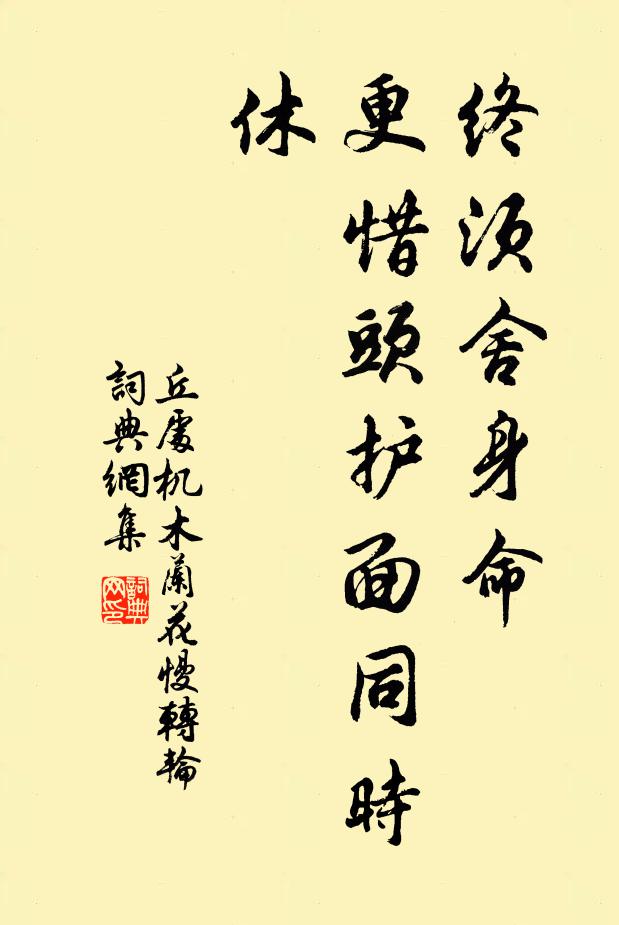 终须舍身命
更惜頭护面同時
休
丘處机木蘭花慢轉輪
詞典網集
詞典
网印